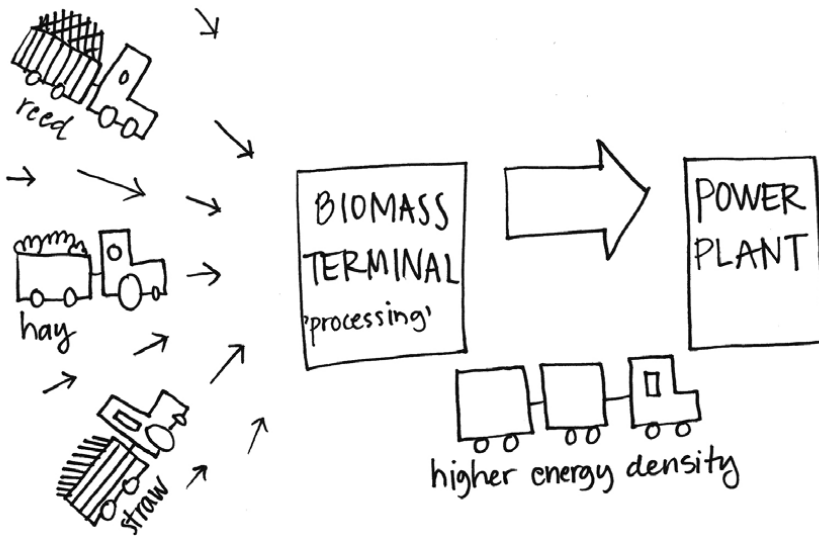 reed
hay
straw
BIOMASS
TERMINAL
'processing'
POWER
PLANT
higher energy density